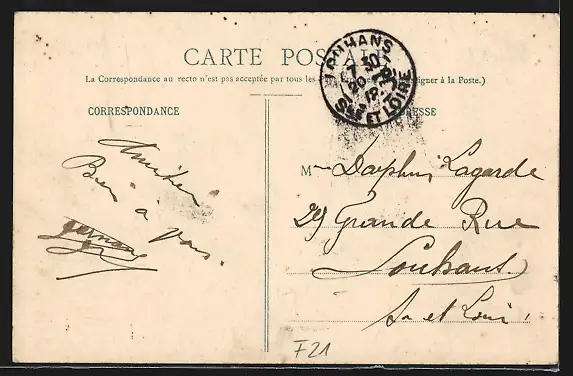 CARTE POSTALE
La Correspondance au recto n'est pas acceptée par tous les
signer à la Poste.)
CORRESPONDANCE
LOUHANS
7 30
20
SNE ET LOIRE
Amitiés
Bien à vous.
Germaine
M Daephin Lagarde
29 Grande Rue
Louhans
Sa et Loire
F21